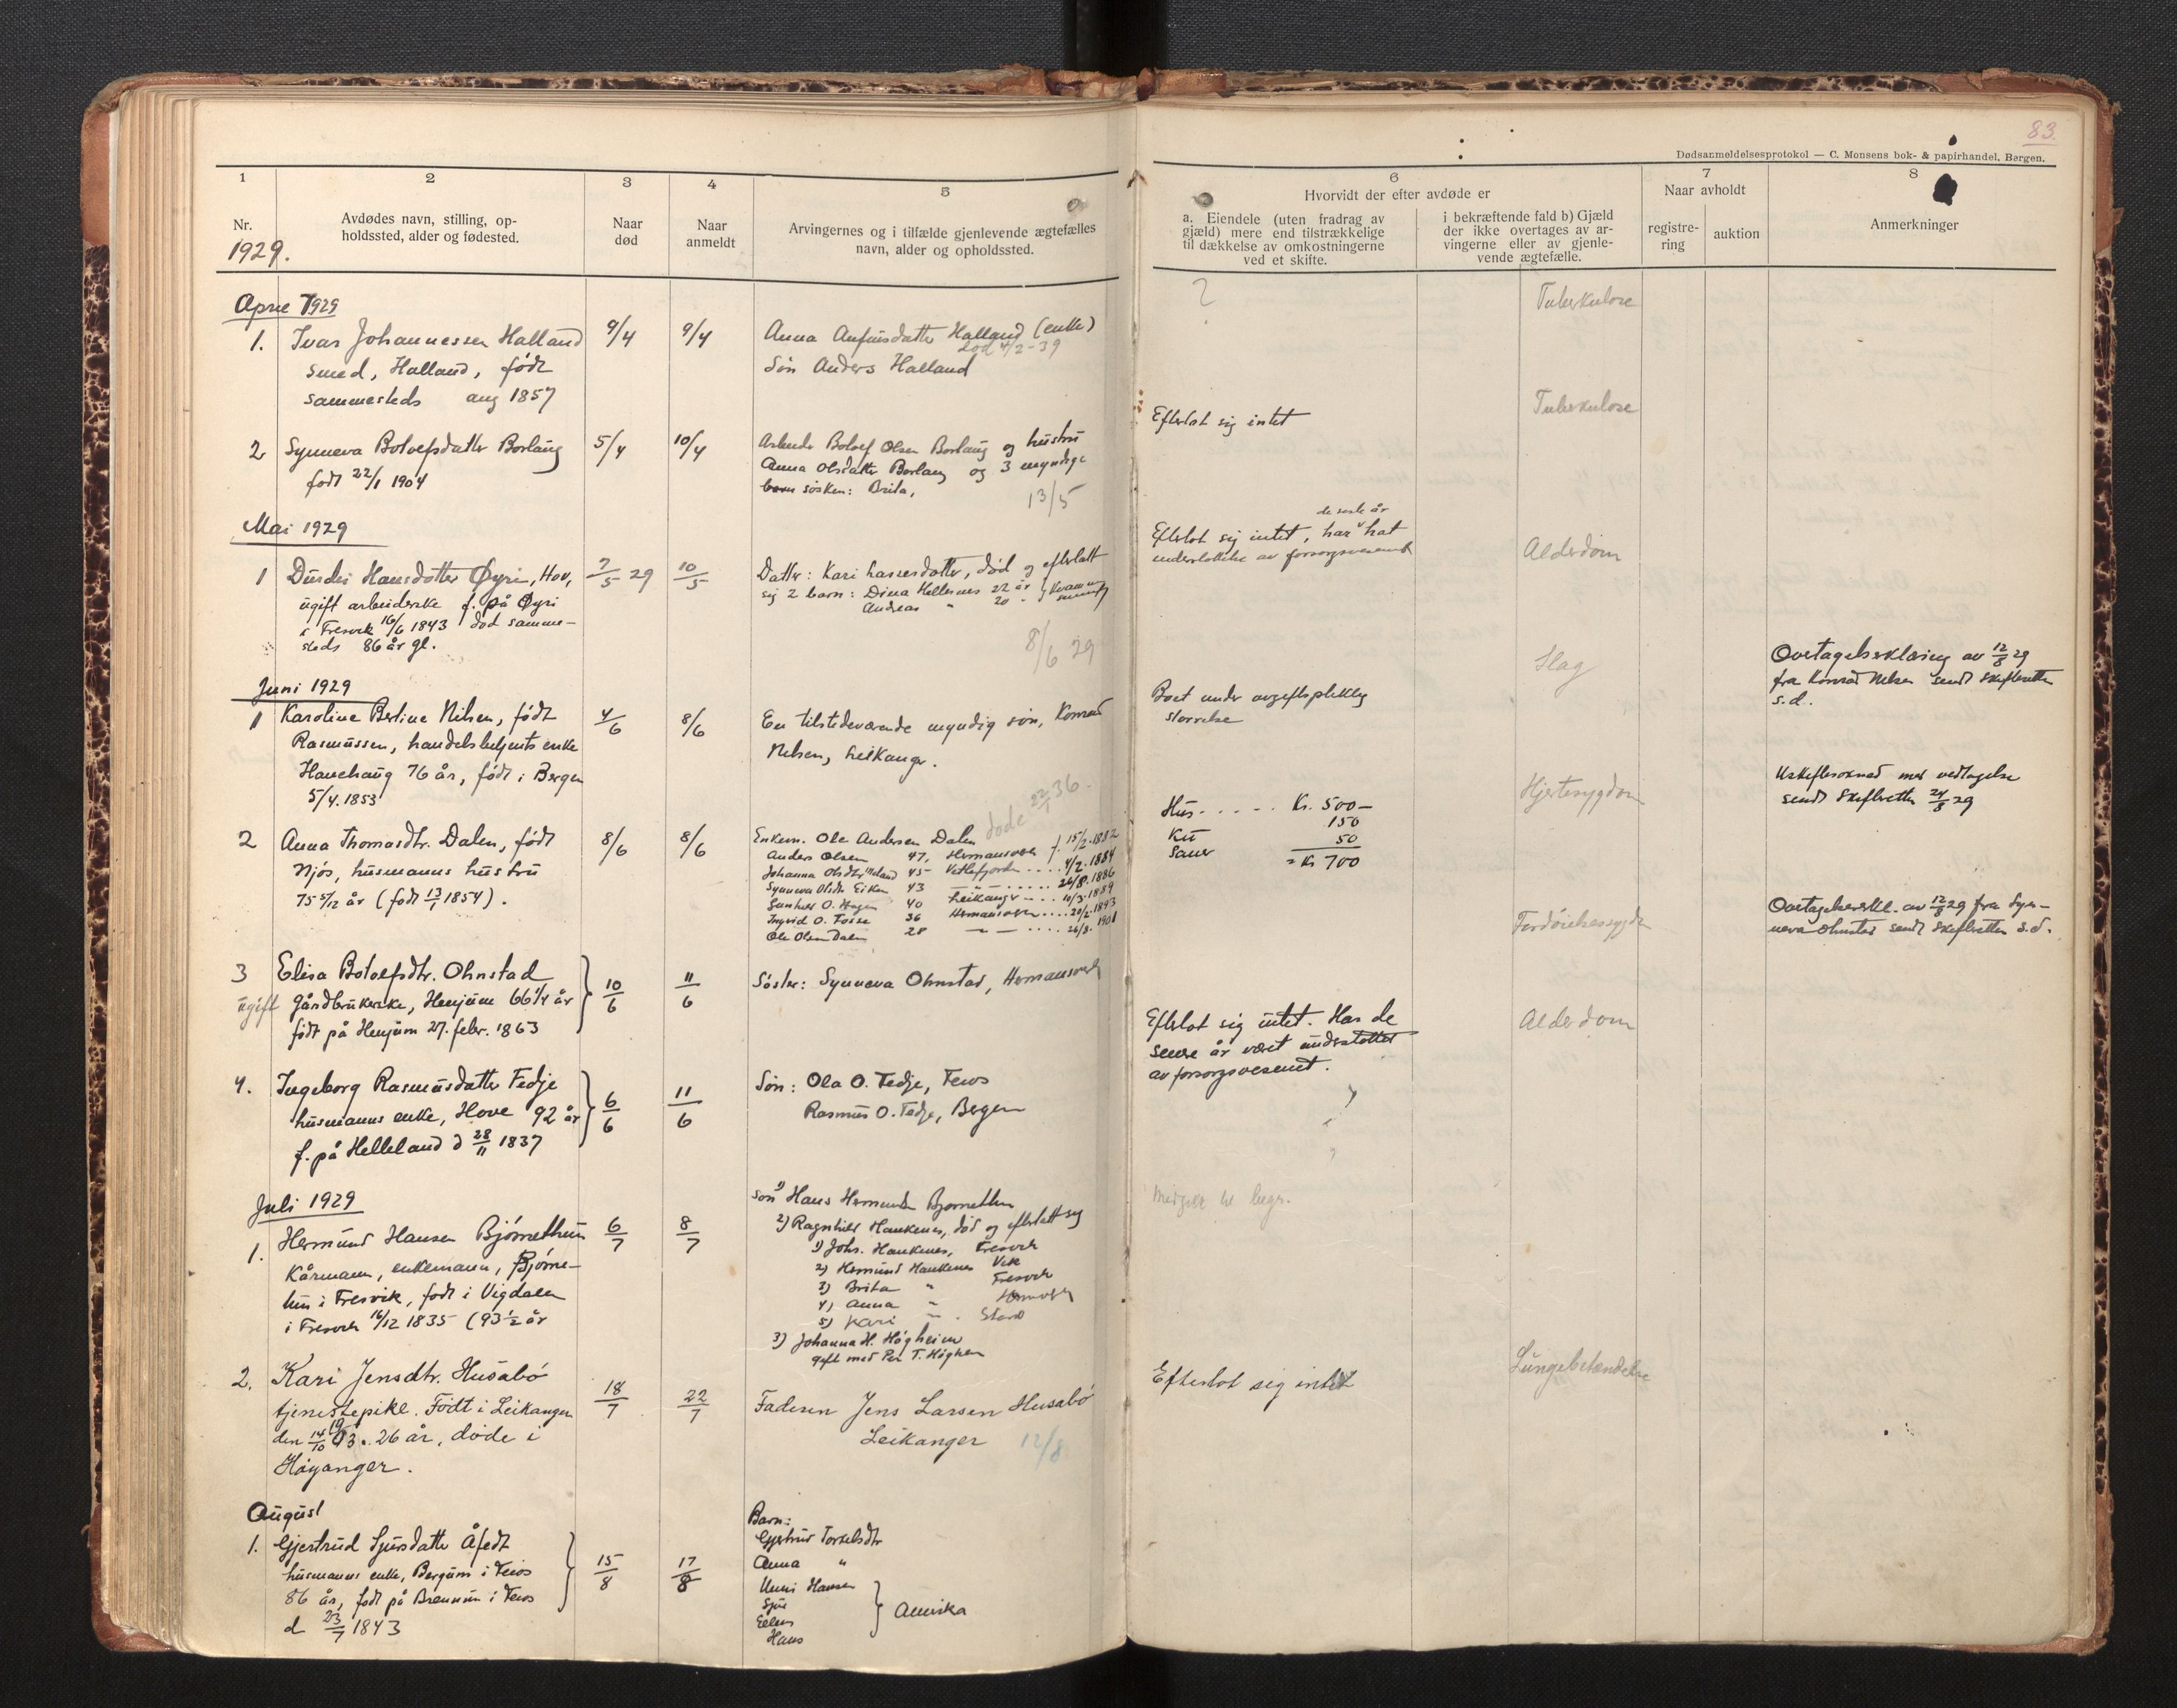 83.
Dødsanmeldelsesprotokol — C. Monsens bok- & papirhandel, Bergen.
1
2
3
4
5
6
7
8
Nr.
Avdødes navn, stilling, op-
holdssted, alder og fødested.
Naar
død
Naar
anmeldt
Arvingernes og i tilfælde gjenlevende ægtefælles
navn, alder og opholdssted.
Hvorvidt der efter avdøde er
a. Eiendele (uten fradrag av
gjæld) mere end tilstrækkelige
til dækkelse av omkostningerne
ved et skifte.
i bekræftende fald b) Gjæld
der ikke overtages av ar-
vingerne eller av gjenle-
vende ægtefælle.
Naar avholdt
registre-
ring
auktion
Anmerkninger
1929.
April 1929
1. Ivar Johannessen Halland
smed, Halland, født
sammesteds aug 1857
9/4
9/4
Anna Anfinsdatter Halland (enke)
død 4/2-39
Søn Anders Halland
?
Tuberkulose
2 Synneva Botolfsdatter Borlaug
født 22/1 1904
5/4
10/4
Botolf Olsen Borlaug og hustru
Anna Olsdatter Borlaug og 3 myndige
barn søsken: Brita,
13/5
Efterlot sig intet
Tuberkulose
Mai 1929
1 Durdei Hansdotter Øyri, Hov,
ugift arbeiderske f. på Øyri
i Fresvik 16/6 1843 død samme-
steds 86 år gl.
7/5 29
10/5
Datter: Kari Lassesdotter, død og efterlatt
sig 2 barn: Dina Hellesnes 22 år
Andreas " 20 "
8/6 29
de siste år
Efterlot sig intet, har hat
understøttelse av forsorgsvesenet
Alderdom
Juni 1929
1 Karoline Berline Nilsen, født
Rasmussen, handelsbetjents enke
Hauehaug 76 år, født i Bergen
5/4. 1853
4/6
8/6
En tilstedeværende myndig søn, Konrad
Nilsen, Leikanger.
Boet under avgiftspliktig
størrelse
Slag
Overtagelseserklæring av 12/8 29
fra Konrad Nilsen sendt skifteretten
s.d.
2 Anna Thomasdtr. Dalen, født
Njøs, husmanns hustru
75 5/12 år (født 13/1 1854).
8/6
8/6
døde 22/1 36.
Enkem. Ole Andersen Dalen
Anders Olsen 47, Hermansverk f. 15/2.1882
Johanna Olsdtr. 45 - Vetlefjorden .... 4/2.1884
Synneva Olsdtr Eiken 43 — " — .... 26/8.1886
Gunhild O. Hagen 40 Leikanger .... 10/3.1889
Ingrid O. Fosse 36 Hermansverk .... 20/2.1893
Ole Olsen Dalen 28 — " — .... 26/8.1901
Hus ..... Kr. 500—
Ku 150
Sauer 50
= Kr 700
Hjertesygdom
Uskiftesøknad med vedtagelse
sendt skifteretten 24/8 29
3 Elisa Botolfsdtr. Ohnstad
ugift gårdbrukerske, Henjum 66 1/4 år
født på Henjum 27. febr. 1863
10/6
11/6
Søster: Synneva Ohnstad, Hermansverk
Fordøielsessygdom
Overtagelseserkl. av 12/8 29 fra Syn-
neva Ohnstad sendt skifteretten s.d.
4. Ingeborg Rasmusdatter Fedje
husmanns enke, Hove 92 år
f. på Helleland d 28/11 1837
6/6
11/6
Søn: Ola O. Fedje, Feios
Rasmus O. Fedje, Bergen
Efterlot sig intet. Har de
senere år været understøttet
av forsorgsvesenet.
Alderdom
Juli 1929
1. Hermund Hansen Bjørnethun
Kårmann, enkemann, Bjørne-
tun i Fresvik, født i Vigdalen
i Fresvik 16/12 1835 (93 1/2 år
6/7
8/7
Søn 1) Hans Hermundsen Bjørnethun
2) Ragnhild Haukenes, død og efterlatt sig
1) Johs. Haukenes, Fresvik
2) Hermund Haukenes Vik
3) Brita " Fresvik
4) Anna "
5) Kari "
3) Johanna H. Høgheim
gift med Per T. Högheim
2. Kari Jensdtr. Husabö
tjenestepike. Födt i Leikanger
den 14/10 1903. 26 år, döde i
Höyanger.
18/7
22/7
Faderen Jens Larsen Husabö
Leikanger 12/8
Efterlot sig intet
Lungebetændelse
August
1. Gjertrud Sjursdatter Åfedt
husmanns enke, Bergum i Feios
86 år, født på Brennum i Feios
d 23/7 1843
15/8
17/8
Barn:
Gjertrud Torkelsdtr
Anna "
Unni Hansen
Sjur
Ellen
Hans
Amerika